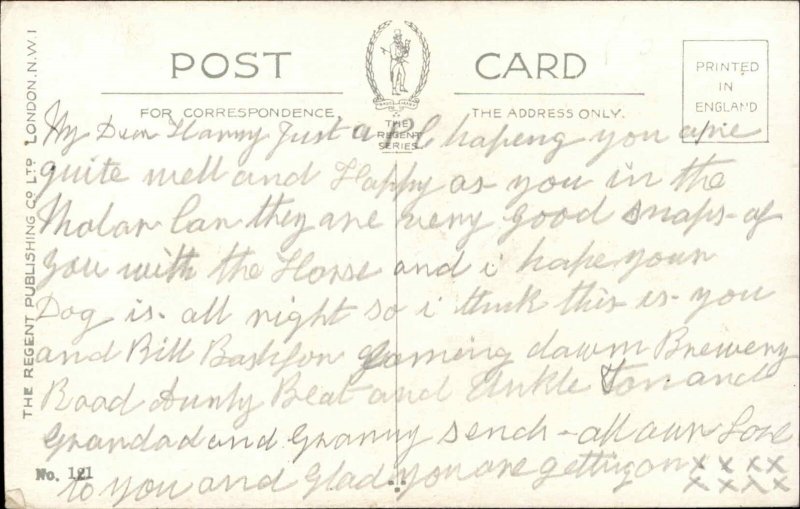 POST CARD
FOR CORRESPONDENCE THE ADDRESS ONLY.
THE
REGENT
SERIES.
PRINTED
IN
ENGLAND
THE REGENT PUBLISHING CO LTD LONDON. N.W.1
My Dear Harry Just a hopeng you are
quite well and Happy as you in the
Motar Car they are very good snaps of
you with the Horse and i hope your
Dog is all right so i think this is you
and Bill coming dawm Brewery
Road Aunty Beat and Unkle Tom and
Grandad and Granny send all aur Love
to you and Glad you are getting on x x x x
x x x x
No. 121